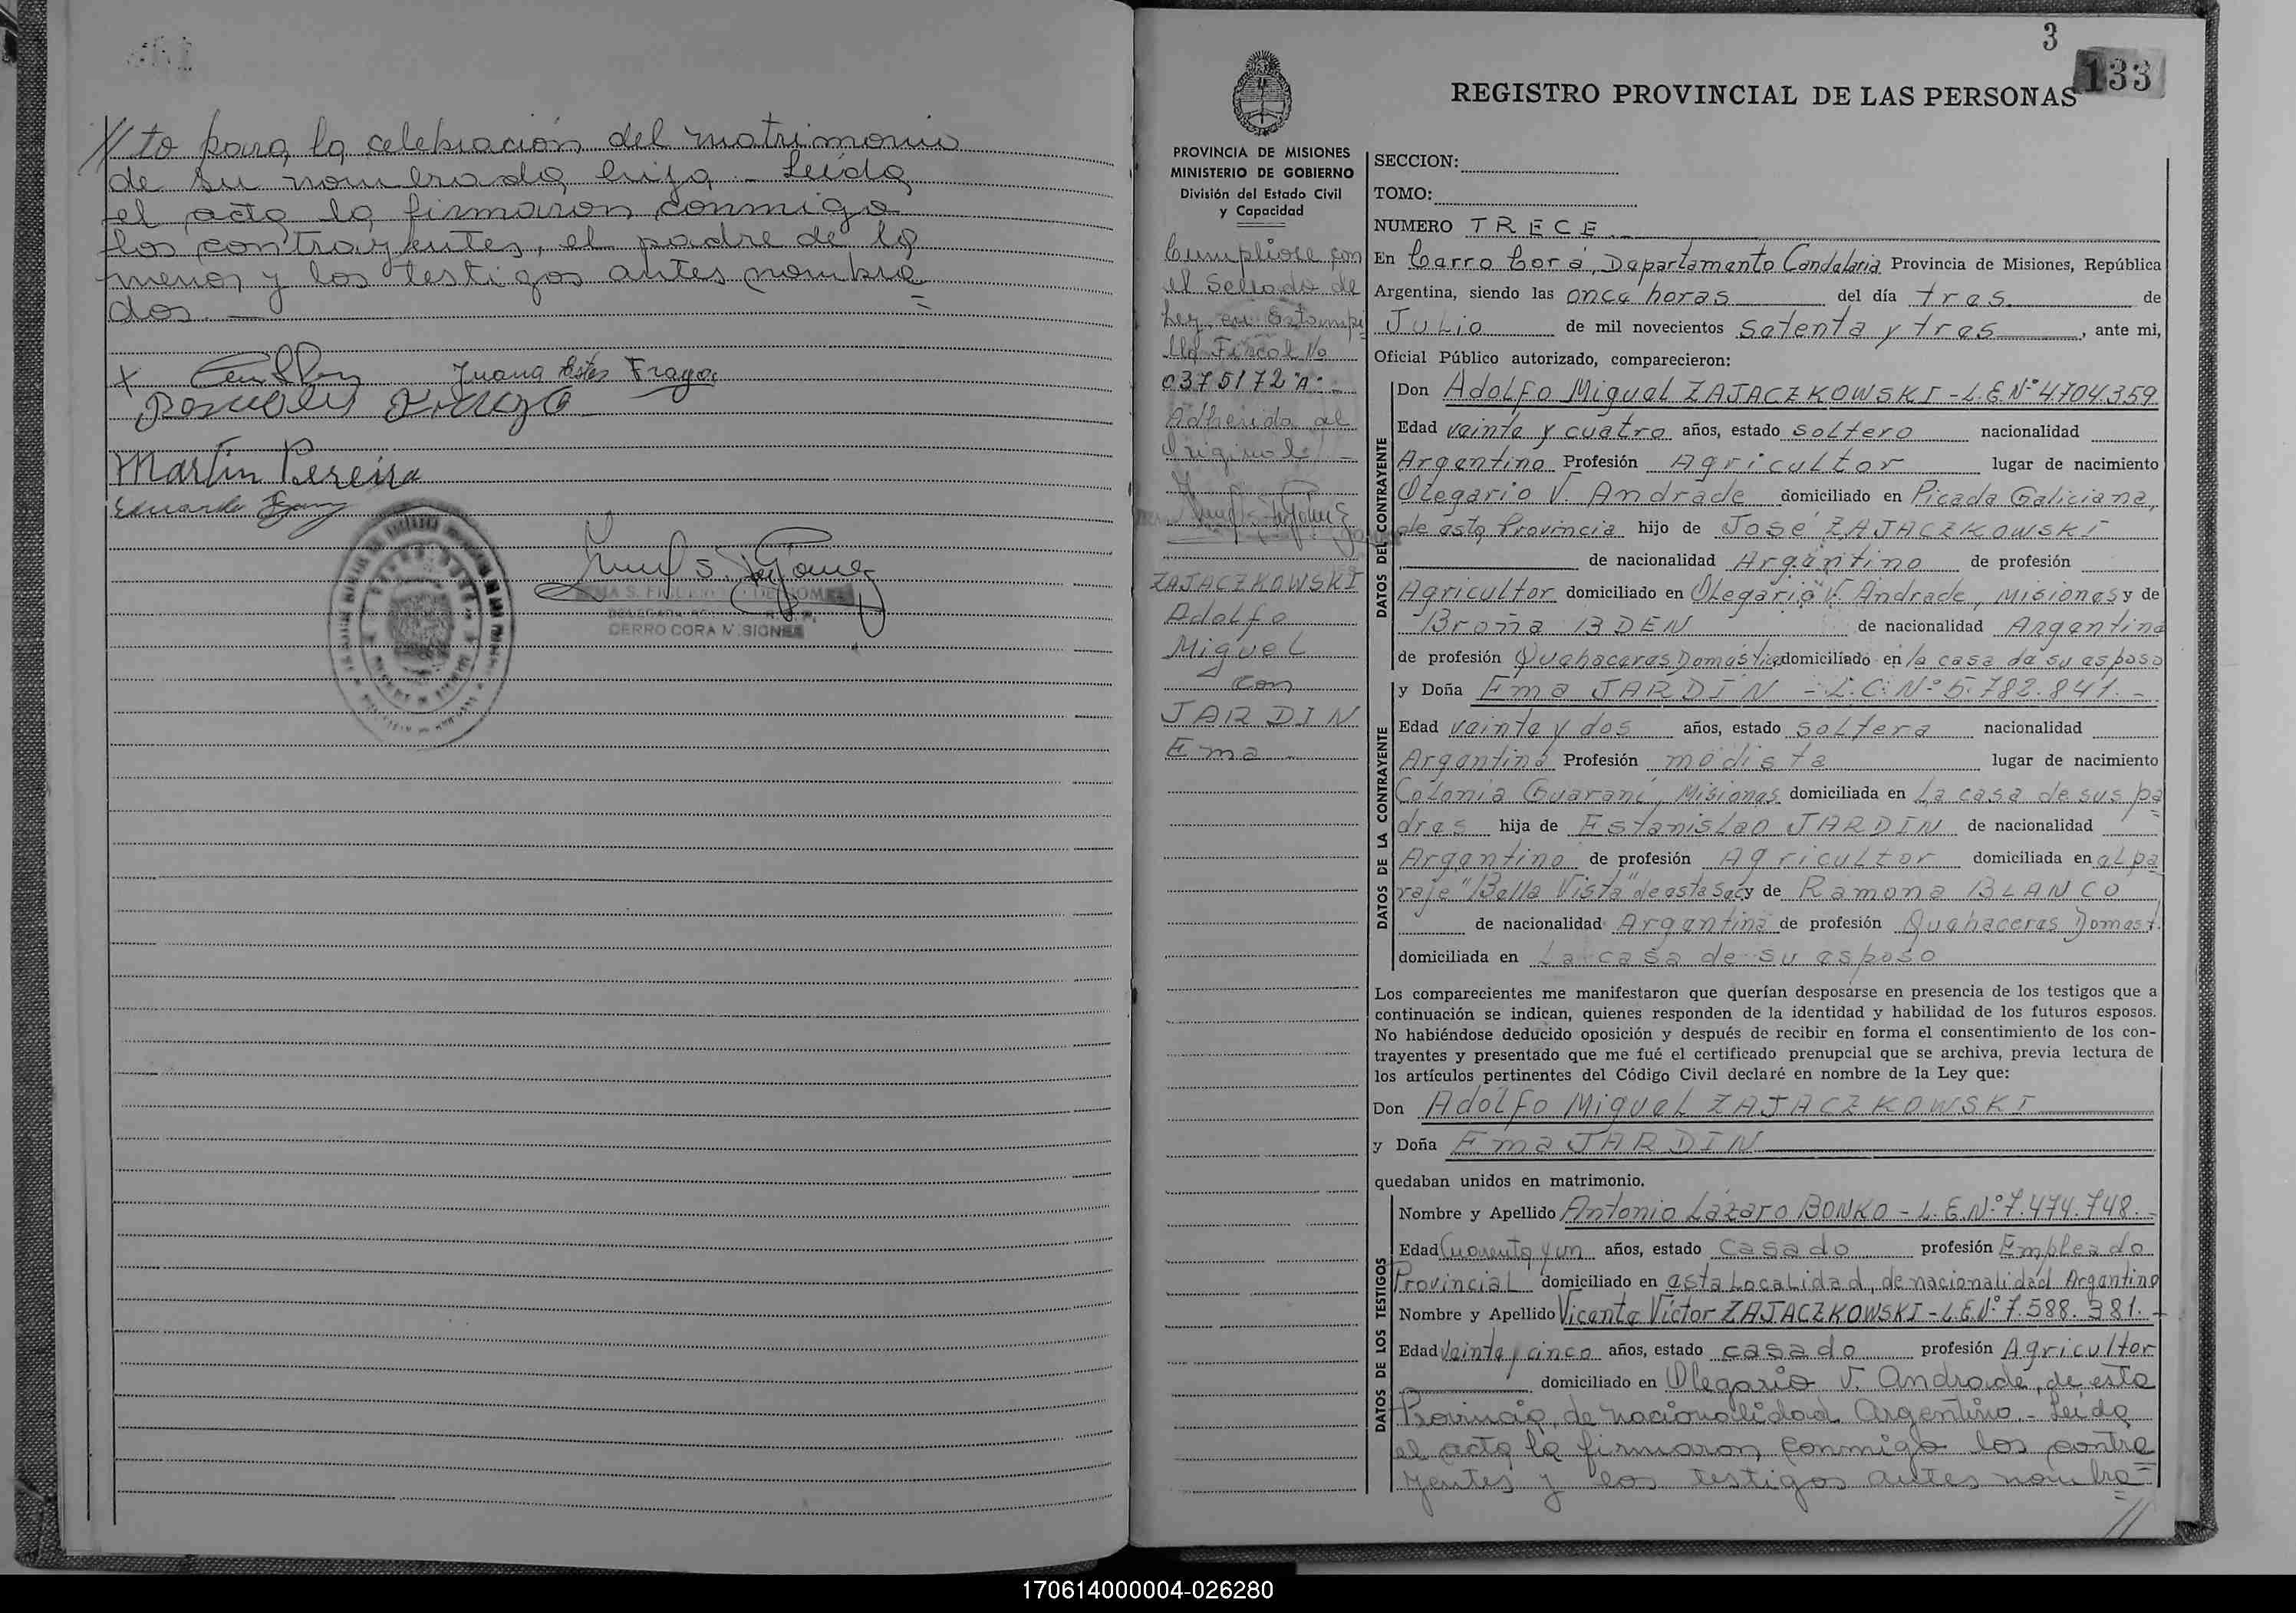 // to para la celebración del matrimonio
de su nombrada hija. - Leída
el acta la firmaron conmigo
los contrayentes, el padre de la
menor y los testigos antes nombra
dos. -
Juana Ester Fragos
Martin Pereira
Eduardo
S. F
DE GOMEZ
DELEGADA
CERRO CORA MISIONES
3
133
REGISTRO PROVINCIAL DE LAS PERSONAS
PROVINCIA DE MISIONES
MINISTERIO DE GOBIERNO
División del Estado Civil
y Capacidad
Cumpliose con
el Sellado de
Ley, en Estampi
lla Fiscal No
0375172 "A" -
Adherida al
Original. -
ZAJACZKOWSKI
Adolfo
Miguel
con
JARDIN
Ema -
SECCION:
TOMO:
NUMERO TRECE
En Cerro Corá, Departamento Candelaria Provincia de Misiones, República
Argentina, siendo las once horas del día tres de
Julio de mil novecientos setenta y tres, ante mi,
Oficial Público autorizado, comparecieron:
DATOS DEL CONTRAYENTE
Don Adolfo Miguel ZAJACZKOWSKI - L.E.Nº 4704359
Edad veinte y cuatro años, estado soltero nacionalidad
Argentino Profesión Agricultor lugar de nacimiento
Olegario V. Andrade domiciliado en Picada Galiciana,
de esta Provincia hijo de José ZAJACZKOWSKI
de nacionalidad Argentino de profesión
Agricultor domiciliado en Olegario V. Andrade, Misiones y de
BDEN de nacionalidad Argentina
de profesión Quehaceres Domésticos domiciliado en la casa de su esposo
DATOS DE LA CONTRAYENTE
y Doña Ema JARDIN - L.C. Nº 5.782.841. -
Edad veinte y dos años, estado soltera nacionalidad
Argentina Profesión modista lugar de nacimiento
Colonia Guaraní, Misiones domiciliada en La casa de sus pa
dres hija de Estanislao JARDIN de nacionalidad
Argentino de profesión Agricultor domiciliada en al pa
raje "Bella Vista" de esta Sec y de Ramona BLANCO
de nacionalidad Argentina de profesión Quehaceres Domest.
domiciliada en La casa de su esposo
Los comparecientes me manifestaron que querían desposarse en presencia de los testigos que a
continuación se indican, quienes responden de la identidad y habilidad de los futuros esposos.
No habiéndose deducido oposición y después de recibir en forma el consentimiento de los con-
trayentes y presentado que me fué el certificado prenupcial que se archiva, previa lectura de
los artículos pertinentes del Código Civil declaré en nombre de la Ley que:
Don Adolfo Miguel ZAJACZKOWSKI
y Doña Ema JARDIN
quedaban unidos en matrimonio.
DATOS DE LOS TESTIGOS
Nombre y Apellido Antonio Lázaro BONKO - L.E.Nº 7.474.748. -
Edad Cuarenta y un años, estado casado profesión Empleado
Provincial domiciliado en esta Localidad, de nacionalidad Argentino
Nombre y Apellido Vicente Víctor ZAJACZKOWSKI - L.E.Nº 7.588.381. -
Edad veinte y cinco años, estado casado profesión Agricultor
domiciliado en Olegario V. Andrade, de esta
Provincia, de nacionalidad Argentino. - Leída
el acta la firmaron conmigo los contra
yentes y los testigos antes nombra=
//
170614000004-026280